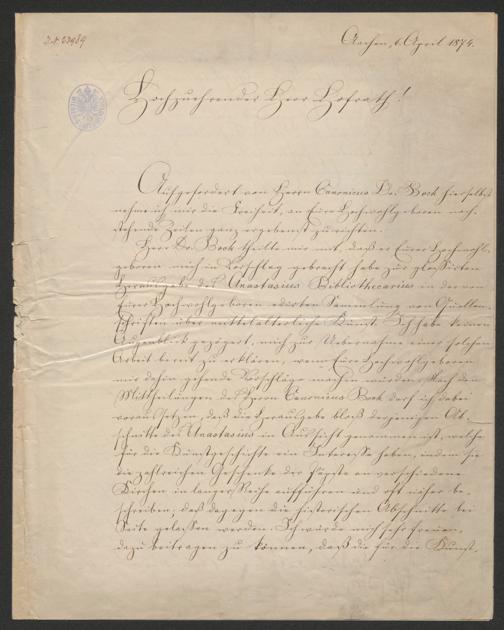 I.N. 33989
Aachen, 6. April 1874.
Hochzuehrender Herr Hofrath!
Aufgefordert von Herrn Canonicus Dr. Bock hierselbst
nehme ich mir die Freiheit, an Eure Hochwohlgeboren nach-
stehende Zeilen ganz ergebenst zu richten.
Herr Dr. Bock theilte mir mit, daß er Eurer Hochwohl-
geboren mich in Vorschlag gebracht habe zur glossirten
Herausgabe des Anastasius Bibliothecarius in der von
Eurer Hochwohlgeboren edirten Sammlung von Quellen-
schriften über mittelalterliche Kunst. Ich habe keinen
Augenblick gezögert, mich zur Uebernahme einer solchen
Arbeit bereit zu erklären, wenn Eure Hochwohlgeboren
mir dahin gehende Vorschläge machen würden. Nach den
Mittheilungen des Herrn Canonicus Bock darf ich dabei
voraussetzen, daß die Herausgabe bloß derjenigen Ab-
schnitte des Anastasius in Aussicht genommen ist, welche
für die Kunstgeschichte ein Interesse haben, indem sie
die zahlreichen Geschenke der Päpste an verschiedene
Kirchen in langer Reihe aufführen und oft näher be-
schreiben; daß dagegen die historischen Abschnitte bei
Seite gelassen werden. Ich würde mich sehr freuen,
dazu beitragen zu können, daß die für die Kunst-